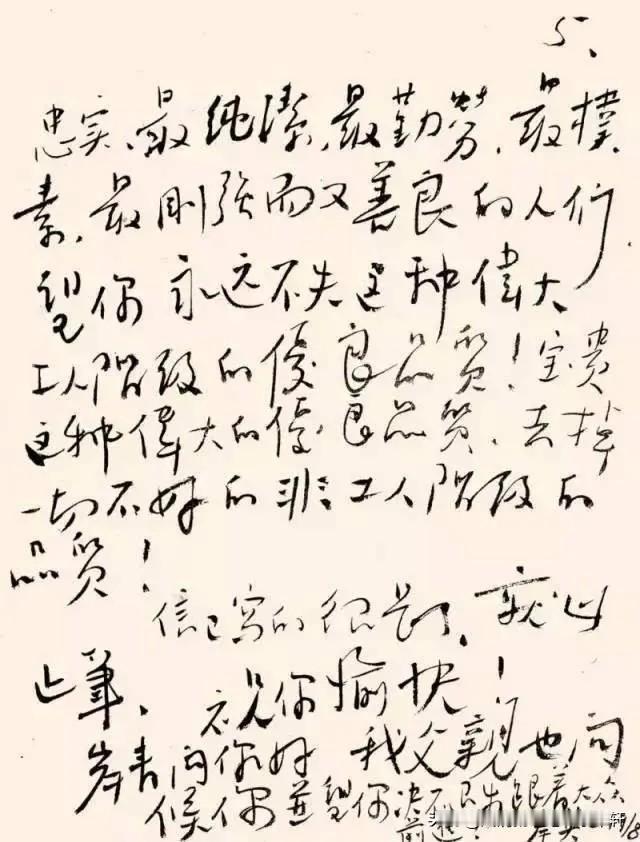 5、
忠实、最纯潔、最勤劳、最樸
素、最刚强而又善良的人们
望你永远不失这种偉大
工人阶级的優良品质！宝贵
这种偉大的優良品质、去掉
一切不好的非工人阶级的
品质！
信已写的很长了、就此
止筆、祝你愉快！
岸青问你好 我父親也问
候你並望你决不 跟着大众
前進！